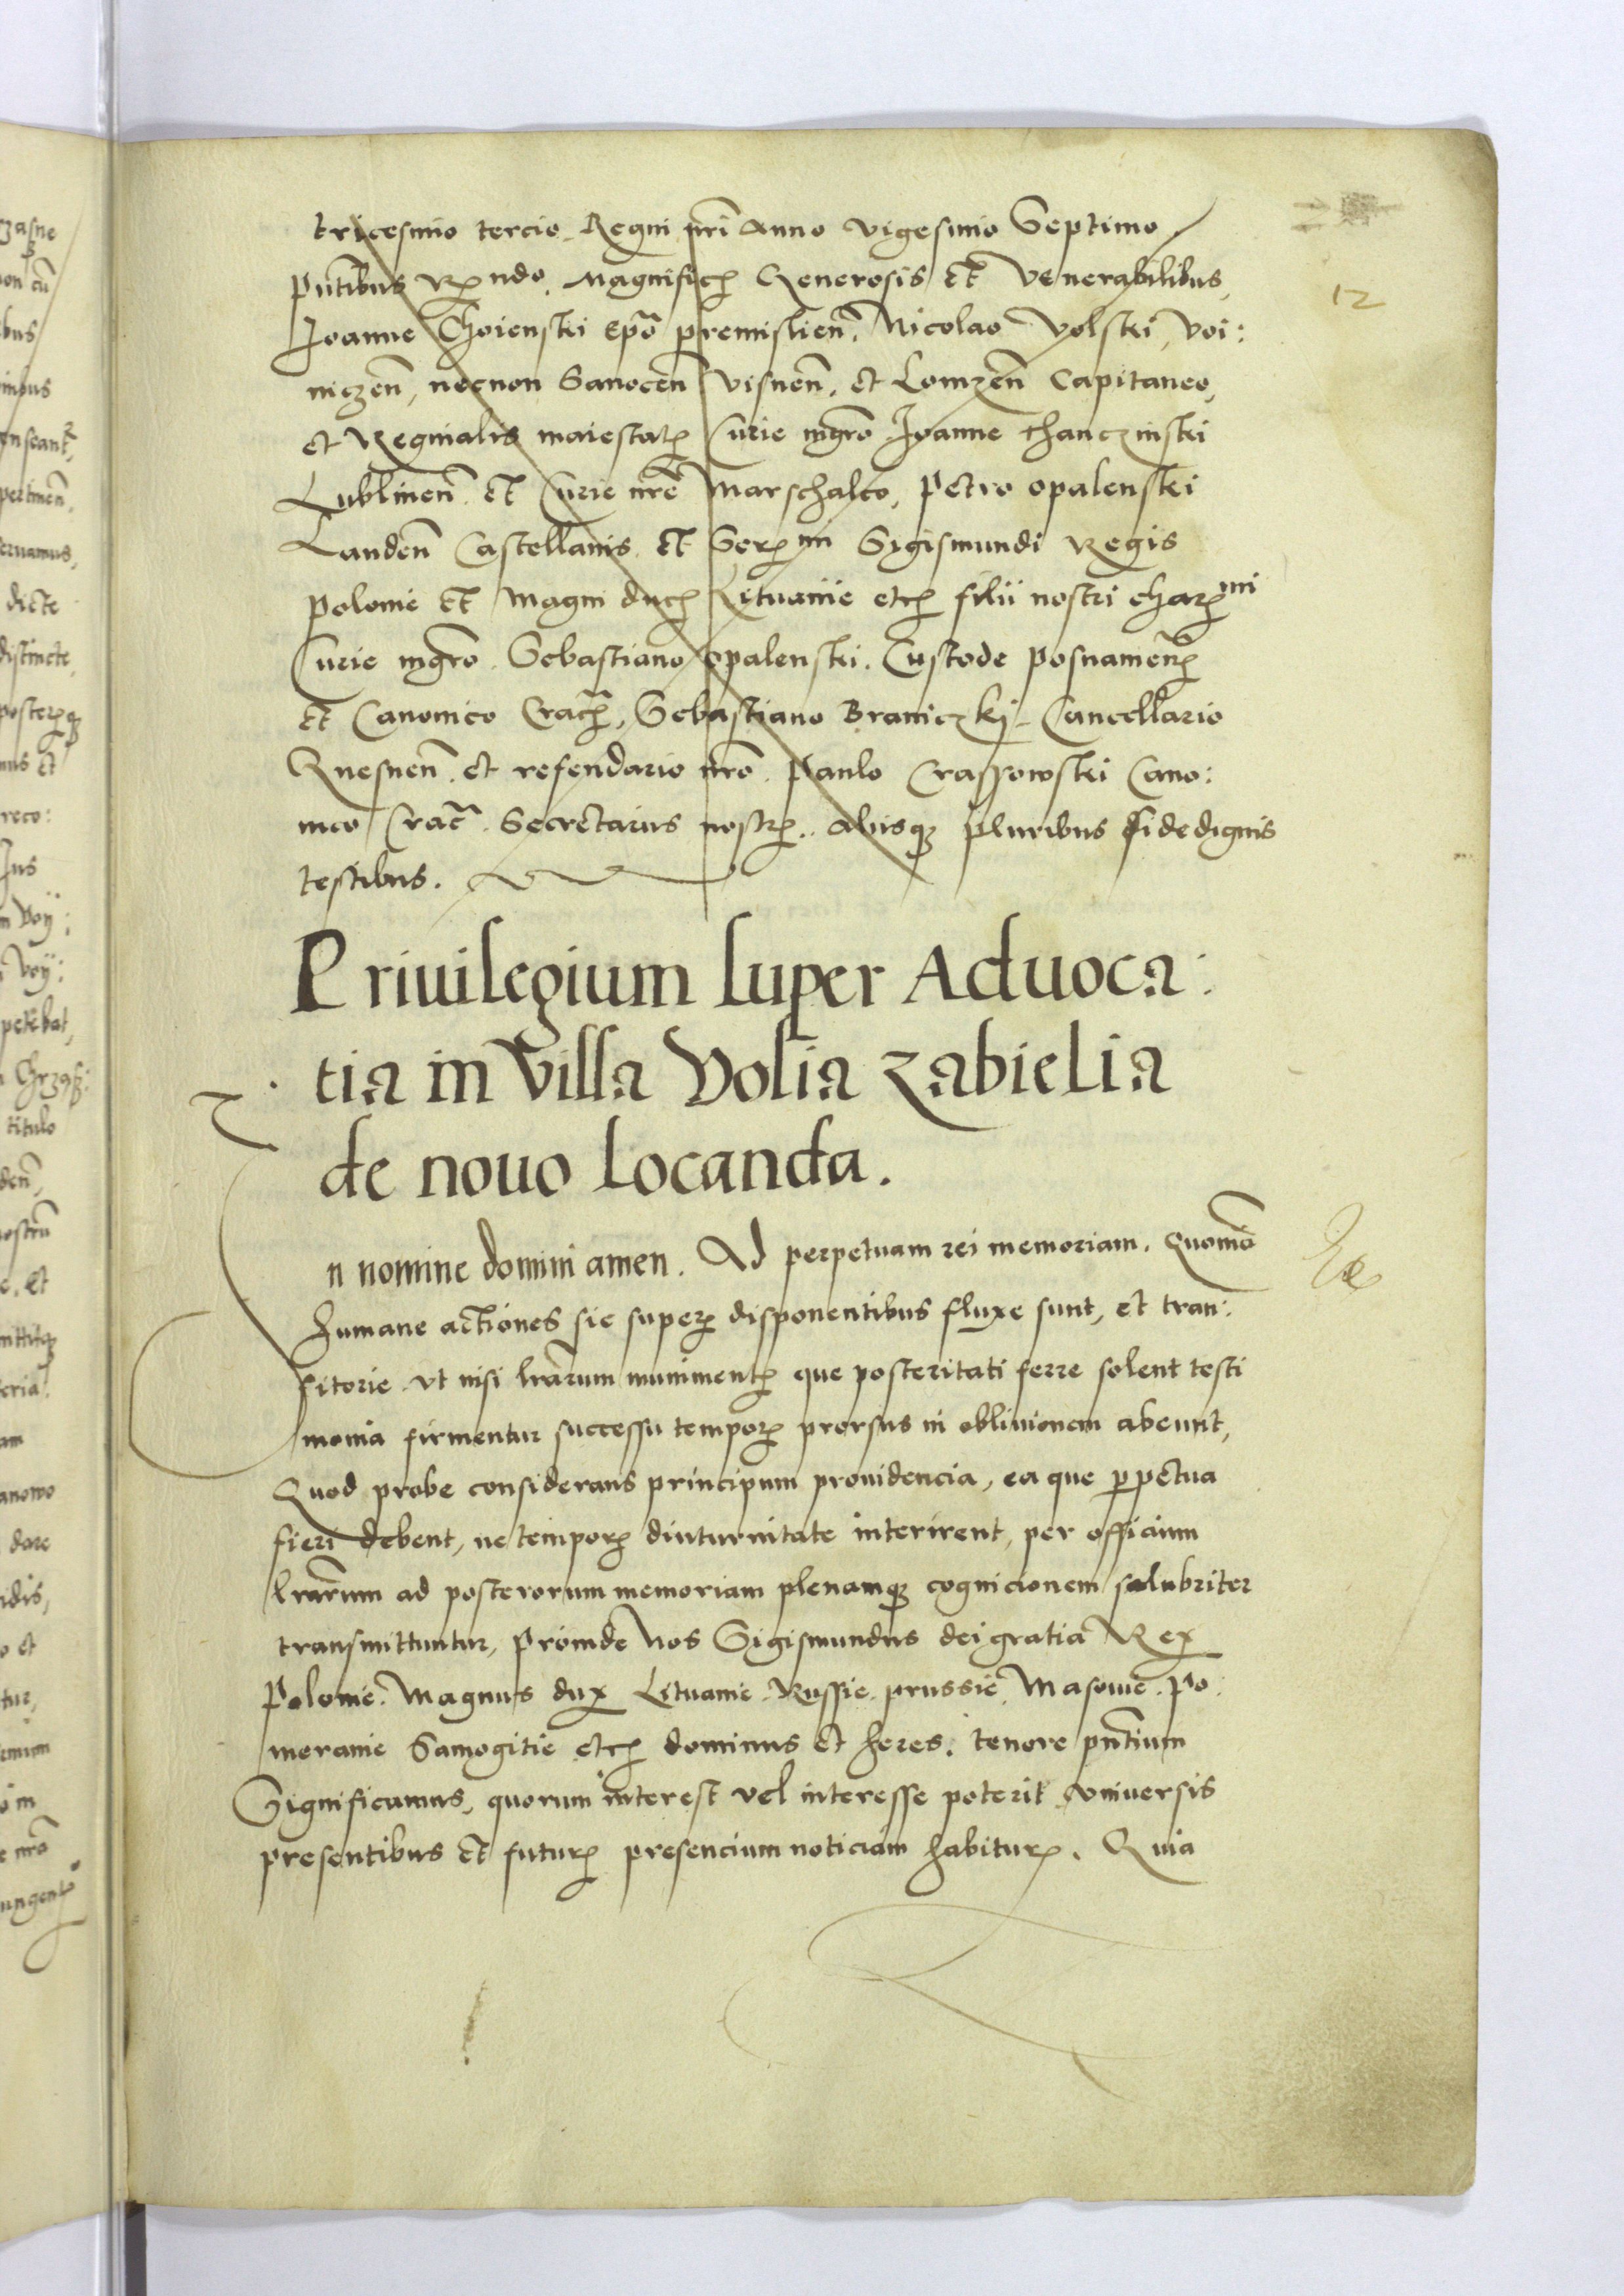 tricesimo tercio. Regni nrĩ Anno vigesimo Septimo
pñtibus Rꝫndo. Magnificꝫ Generosis et venerabilibus,
Joanne Choienski Epõ premislieñ. Nicolao Volski, voi:
niczeñ, necnon Sanoceñ visneñ. et Lomzeñ Capitaneo,
et Reginalis maiestatꝫ Curie mgrõ Joanne Thanczinski
Lublineñ et Curie nrẽ Marschalco, Petro opalenski
Landeñ Castellanis et Serꝫmi Sigismundi Regis
polonie et Magni ducꝫ Lituanie etcꝫ filii nostri charꝫmi
Curie mgrõ. Sebastiano opalenski. Custode posnamenꝫ
et Canonico Cracꝫ, Sebastiano Braniczkj Cancellario
Gnesneñ. et refendario nrõ. paulo Crassowski Cano:
nico Crac̃. Secretariis nostrꝫ. aliisqꝫ pluribus fidedignis
testibus.
12
Priuilegium super Aduoca:
tia in villa Volia Zabielia
de nouo Locanda.
n nomine domini amen. Ad perpetuam rei memoriam. Quoniã
humane actiones sic superꝫ disponentibus fluxe sunt, et tran:
sitorie vt nisi lrãrum munimentꝫ que posteritati ferre solent testi
monia firmentur successu temporꝫ prorsus in obliuionem abeunt,
Quod probe considerans principum prouidencia, ea que ꝑpetua
fieri debent, ne temporꝫ diuturnitate interirent, per officium
lrãrum ad posterorum memoriam plenamqꝫ cognicionem salubriter
transmittuntur, proinde Nos Sigismundus dei gratia Rex
Polonie. Magnus dux Lituanie Russie. prussie Masouie. Po:
meranie Samogitie etcꝫ dominus et heres. tenore pñtium
Significamus, quorum interest vel interesse poterit vniuersis
presentibus et futurꝫ presencium noticiam habiturꝫ. Quia